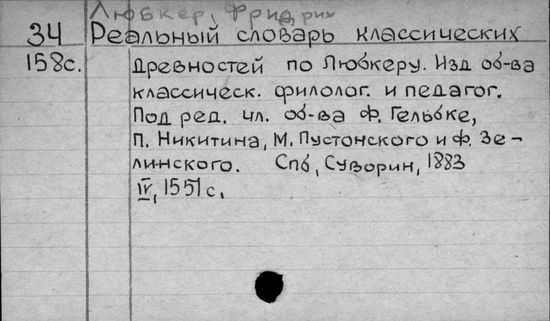 Любкер, Фридрих
34 Реальный словарь классических
158с. Древностей по Любкеру. Изд об-ва
классическ. филолог. и педагог.
Под ред. чл. об-ва Ф. Гельбке,
П. Никитина, М. Пустонского и Ф. Зе-
линского. Спб, Суворин, 1883
IV, 1551 с.